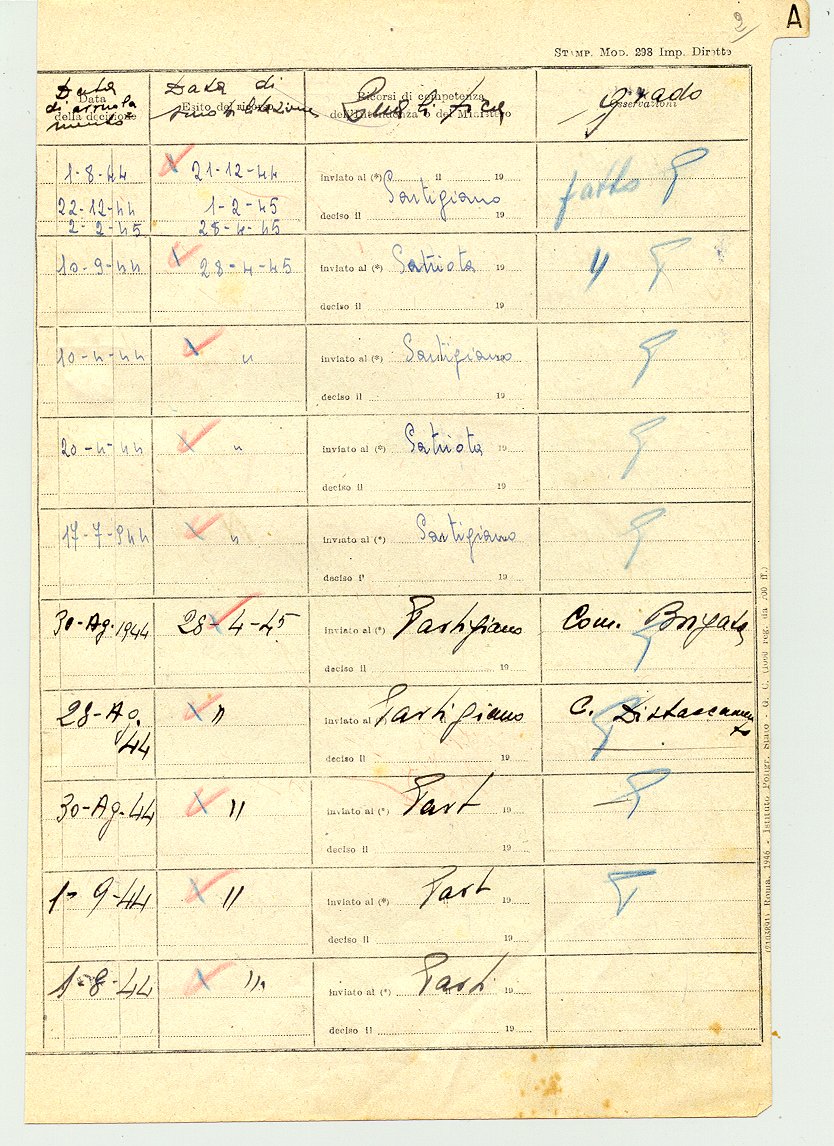 2
A
STAMP. MOD. 298 Imp. Dirette
Data di arruolamento
Data di smobilitazione
Qualifica
grado
Data della decisione
Esito del ricorso
Ricorsi di competenza dell'Intendenza o del Ministero
Osservazioni
1-8-44 21-12-44 inviato al (*) il 19
22-12-44 1-2-45 Partigiano fatto
2-2-45 28-4-45 deciso il 19
10-9-44 28-4-45 inviato al (*) Patriota 19 "
deciso il 19
10-4-44 " inviato al (*) Partigiano
deciso il 19
20-4-44 " inviato al (*) Patriota 19
deciso il 19
17-7-944 " inviato al (*) Partigiano
deciso il 19
30-Ag.1944 28-4-45 inviato al (*) Partigiano Com. Brigata
deciso il 19
28-Ag.44 " inviato al Partigiano C. Distaccamento
deciso il 19
30-Ag-44 " inviato al (*) Part 19
deciso il 19
1-9-44 " inviato al (*) Part 19
deciso il 19
1-8-44 " inviato al (*) Part. 19
deciso il 19
Roma, 1946 - Istituto Poligr. Stato - G. C.